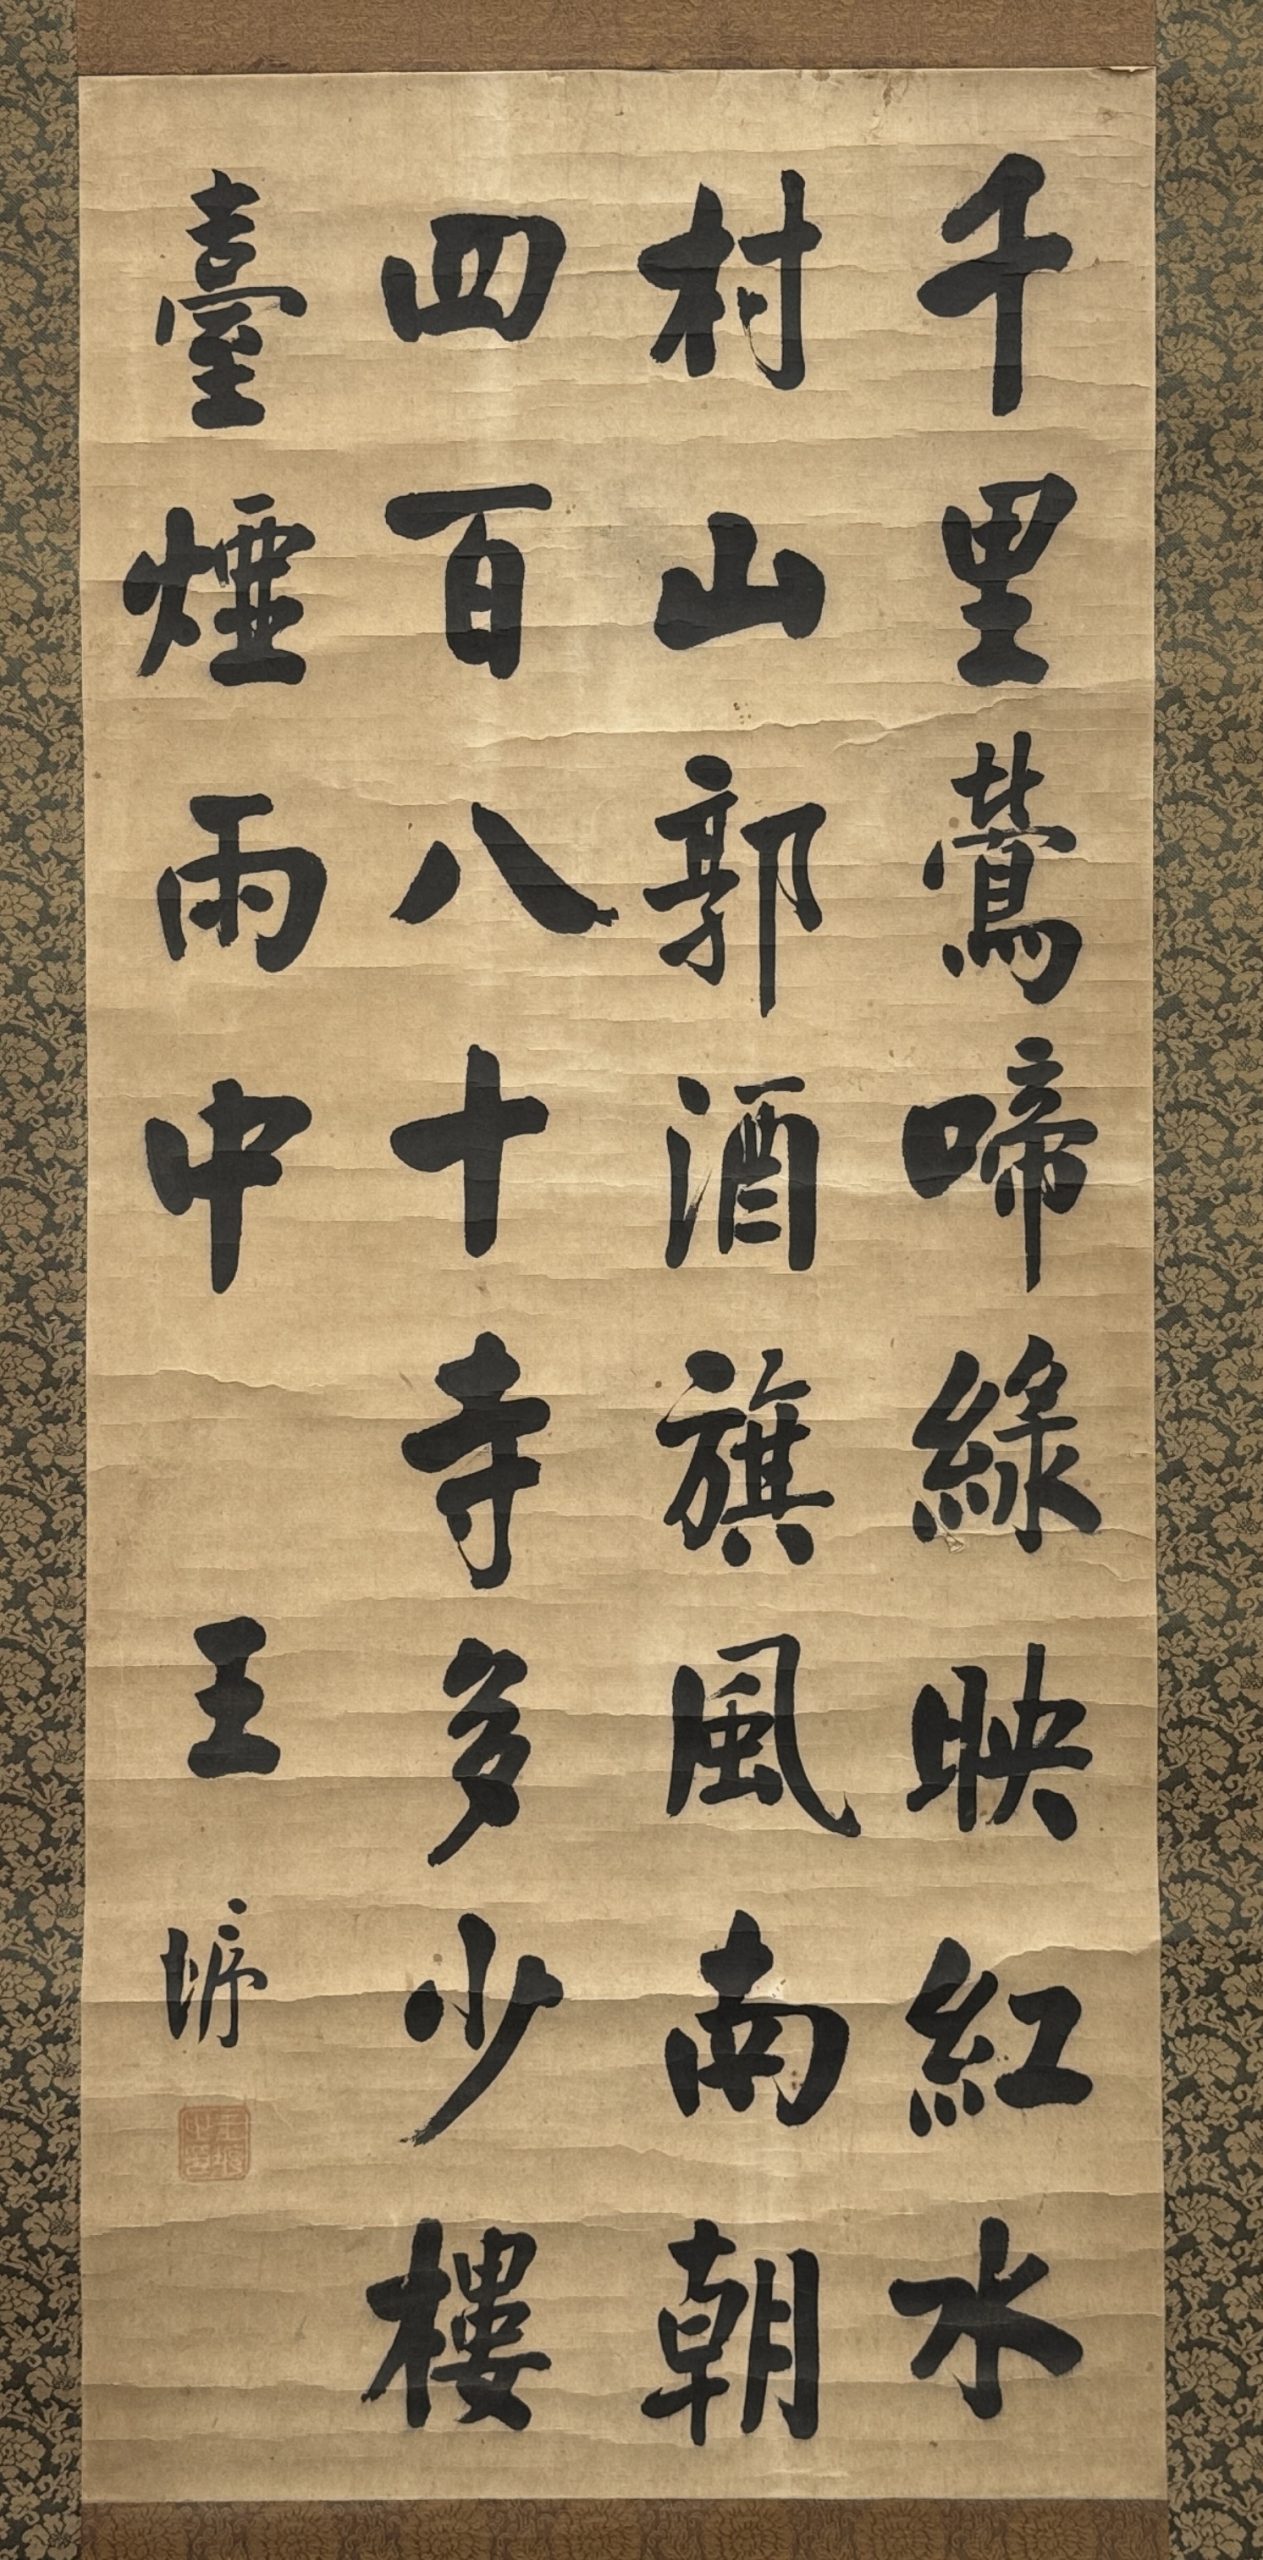 千里鶯啼綠映紅水
村山郭酒旗風南朝
四百八十寺多少樓
臺煙雨中　王